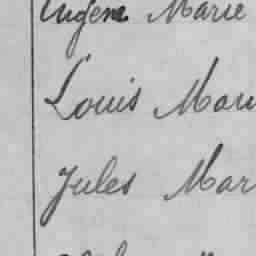 Eugène Marie
Louis Mari
Jules Mar